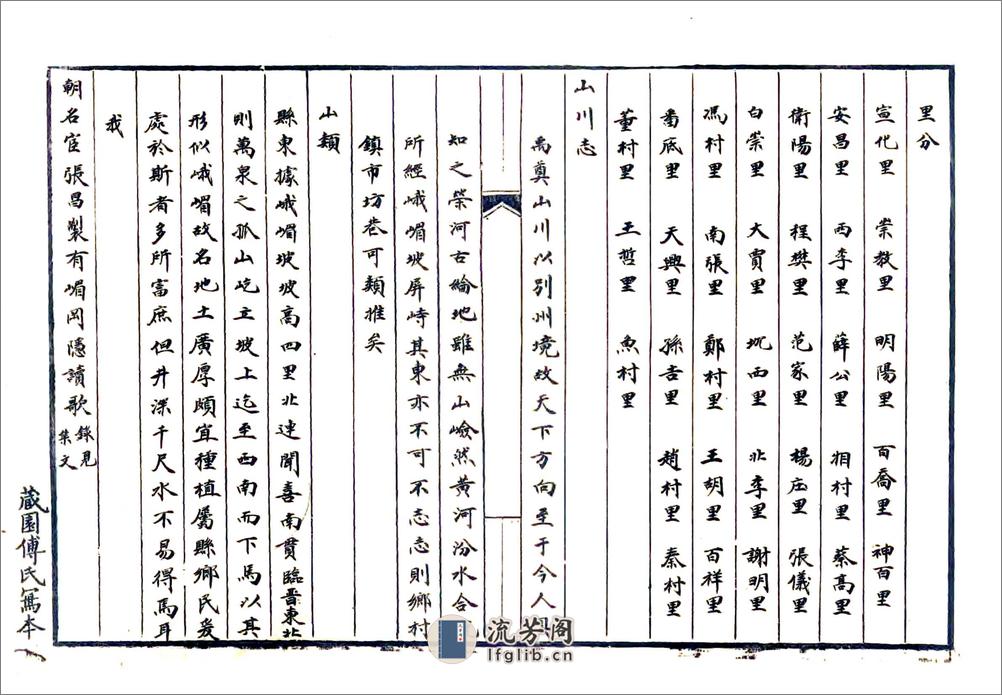 里分
宣化里 崇教里 明陽里 百喬里 神百里
安昌里 西李里 薛公里 相村里 蔡高里
衛陽里 程樊里 范家里 楊庄里 張儀里
白崇里 大賈里 坬西里 北李里 謝明里
馮村里 南張里 鄭村里 王胡里 百祥里
番底里 天興里 孫吉里 趙村里 秦村里
董村里 王哲里 魚村里
山川志
禹奠山川以別州境故天下方向至于今人
知之榮河古綸地雖無山嶮然黃河汾水合
所經峨嵋坡屏峙其東亦不可不志志則鄉村
鎮市坊巷可類推矣
山類
縣東據峨嵋坡坡高四里北連聞喜南貫臨晉東北
則萬泉之孤山屹立坡上迄至西南而下焉以其
形似峨嵋故名地土廣厚頗宜種植屬縣鄉民爰
處於斯者多所富庶但井深千尺水不易得焉耳
我
朝名宦張昌製有嵋岡隱讀歌錄見
集文
藏園傅氏寫本
流芳阁
lfglib.cn